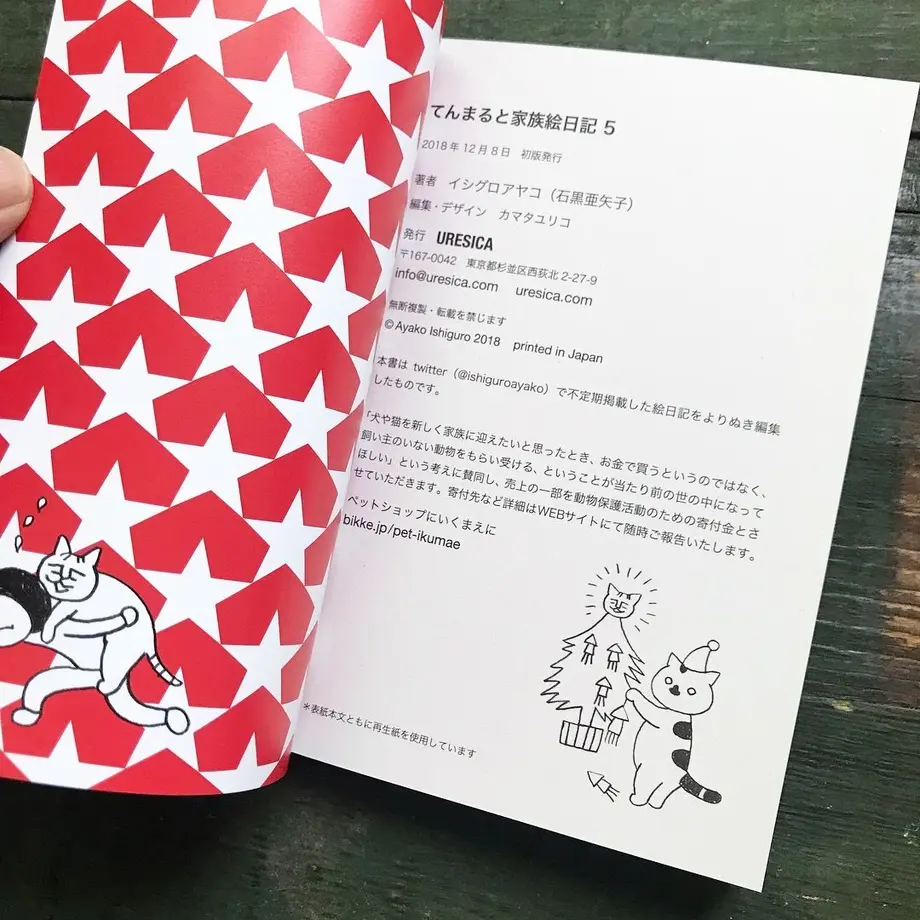 てんまると家族絵日記 5
2018年12月8日 初版発行
著者 イシグロアヤコ(石黒亜矢子)
編集・デザイン カマタユリコ
発行 URESICA
〒167-0042 東京都杉並区西荻北2-27-9
info@uresica.com uresica.com
無断複製・転載を禁じます
©Ayako Ishiguro 2018 printed in Japan
本書は twitter(@ishiguroayako)で不定期掲載した絵日記をよりぬき編集
したものです。
「犬や猫を新しく家族に迎えたいと思ったとき、お金で買うというのではなく、
飼い主のいない動物をもらい受ける、ということが当たり前の世の中になって
ほしい」という考えに賛同し、売上の一部を動物保護活動のための寄付金とさ
せていただきます。寄付先など詳細はWEBサイトにて随時ご報告いたします。
ペットショップにいくまえに
bikke.jp/pet-ikumae
*表紙本文ともに再生紙を使用しています